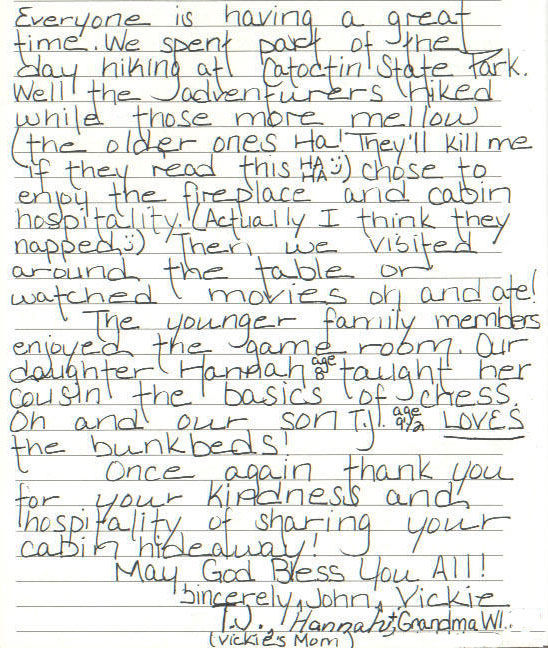 Everyone is having a great
time. We spent part of the
day hiking at Catoctin State Park.
Well the adventurers hiked
while those more mellow
(the older ones Ha! They'll kill me
if they read this HA HA :)) chose to
enjoy the fireplace and cabin
hospitality. (Actually I think they
napped :)) Then, we visited
around the table or
watched movies oh and ate!
The younger family members
enjoyed the game room. Our
daughter Hannah age 8 taught her
cousin the basics of chess.
Oh and our son T.J. age 9 1/2 LOVES
the bunkbeds!
Once again thank you
for your kindness and
hospitality of sharing your
cabin hideaway!
May God Bless You All!
Sincerely, John, Vickie
T.J., Hannah + Grandma W.
(Vickie's Mom)